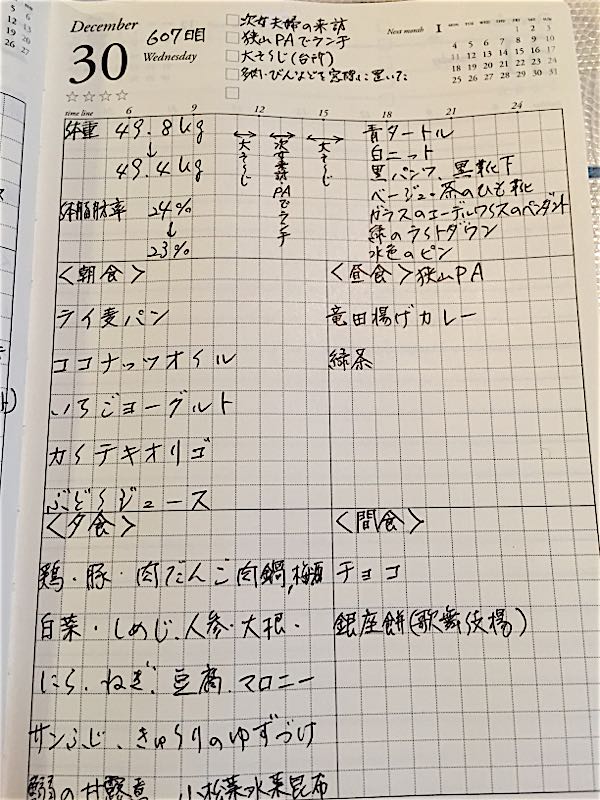 December
30
Wednesday
607日目
☆☆☆☆
次女夫婦の来訪
狭山PAでランチ
大そうじ(台所)
Next month 1
MON TUE WED THU FRI SAT SUN
1 2 3
4 5 6 7 8 9 10
11 12 13 14 15 16 17
18 19 20 21 22 23 24
25 26 27 28 29 30 31
time line 6 9 12 15 18 21 24
体重 49.8kg
↓
49.4kg
体脂肪率 24%
↓
23%
大そうじ
次女来訪PAでランチ
大そうじ
青タートル
白ニット
黒パンツ、黒靴下
ベージュ・茶のひも靴
ガラスのエーデルワイスのペンダント
緑のライトダウン
水色のピン
<朝食>
ライ麦パン
ココナッツオイル
いちごヨーグルト
カイテキオリゴ
ぶどうジュース
<昼食>狭山PA
竜田揚げカレー
緑茶
<夕食>
鶏・豚・肉だんご肉鍋,梅酒
白菜・しめじ、人参・大根・
にら、ねぎ、豆腐、マロニー
サンふじ、きゅうりのゆずづけ
鰯の甘露煮 小松菜水菜昆布
<間食>
チョコ
銀座餅(歌舞伎揚)